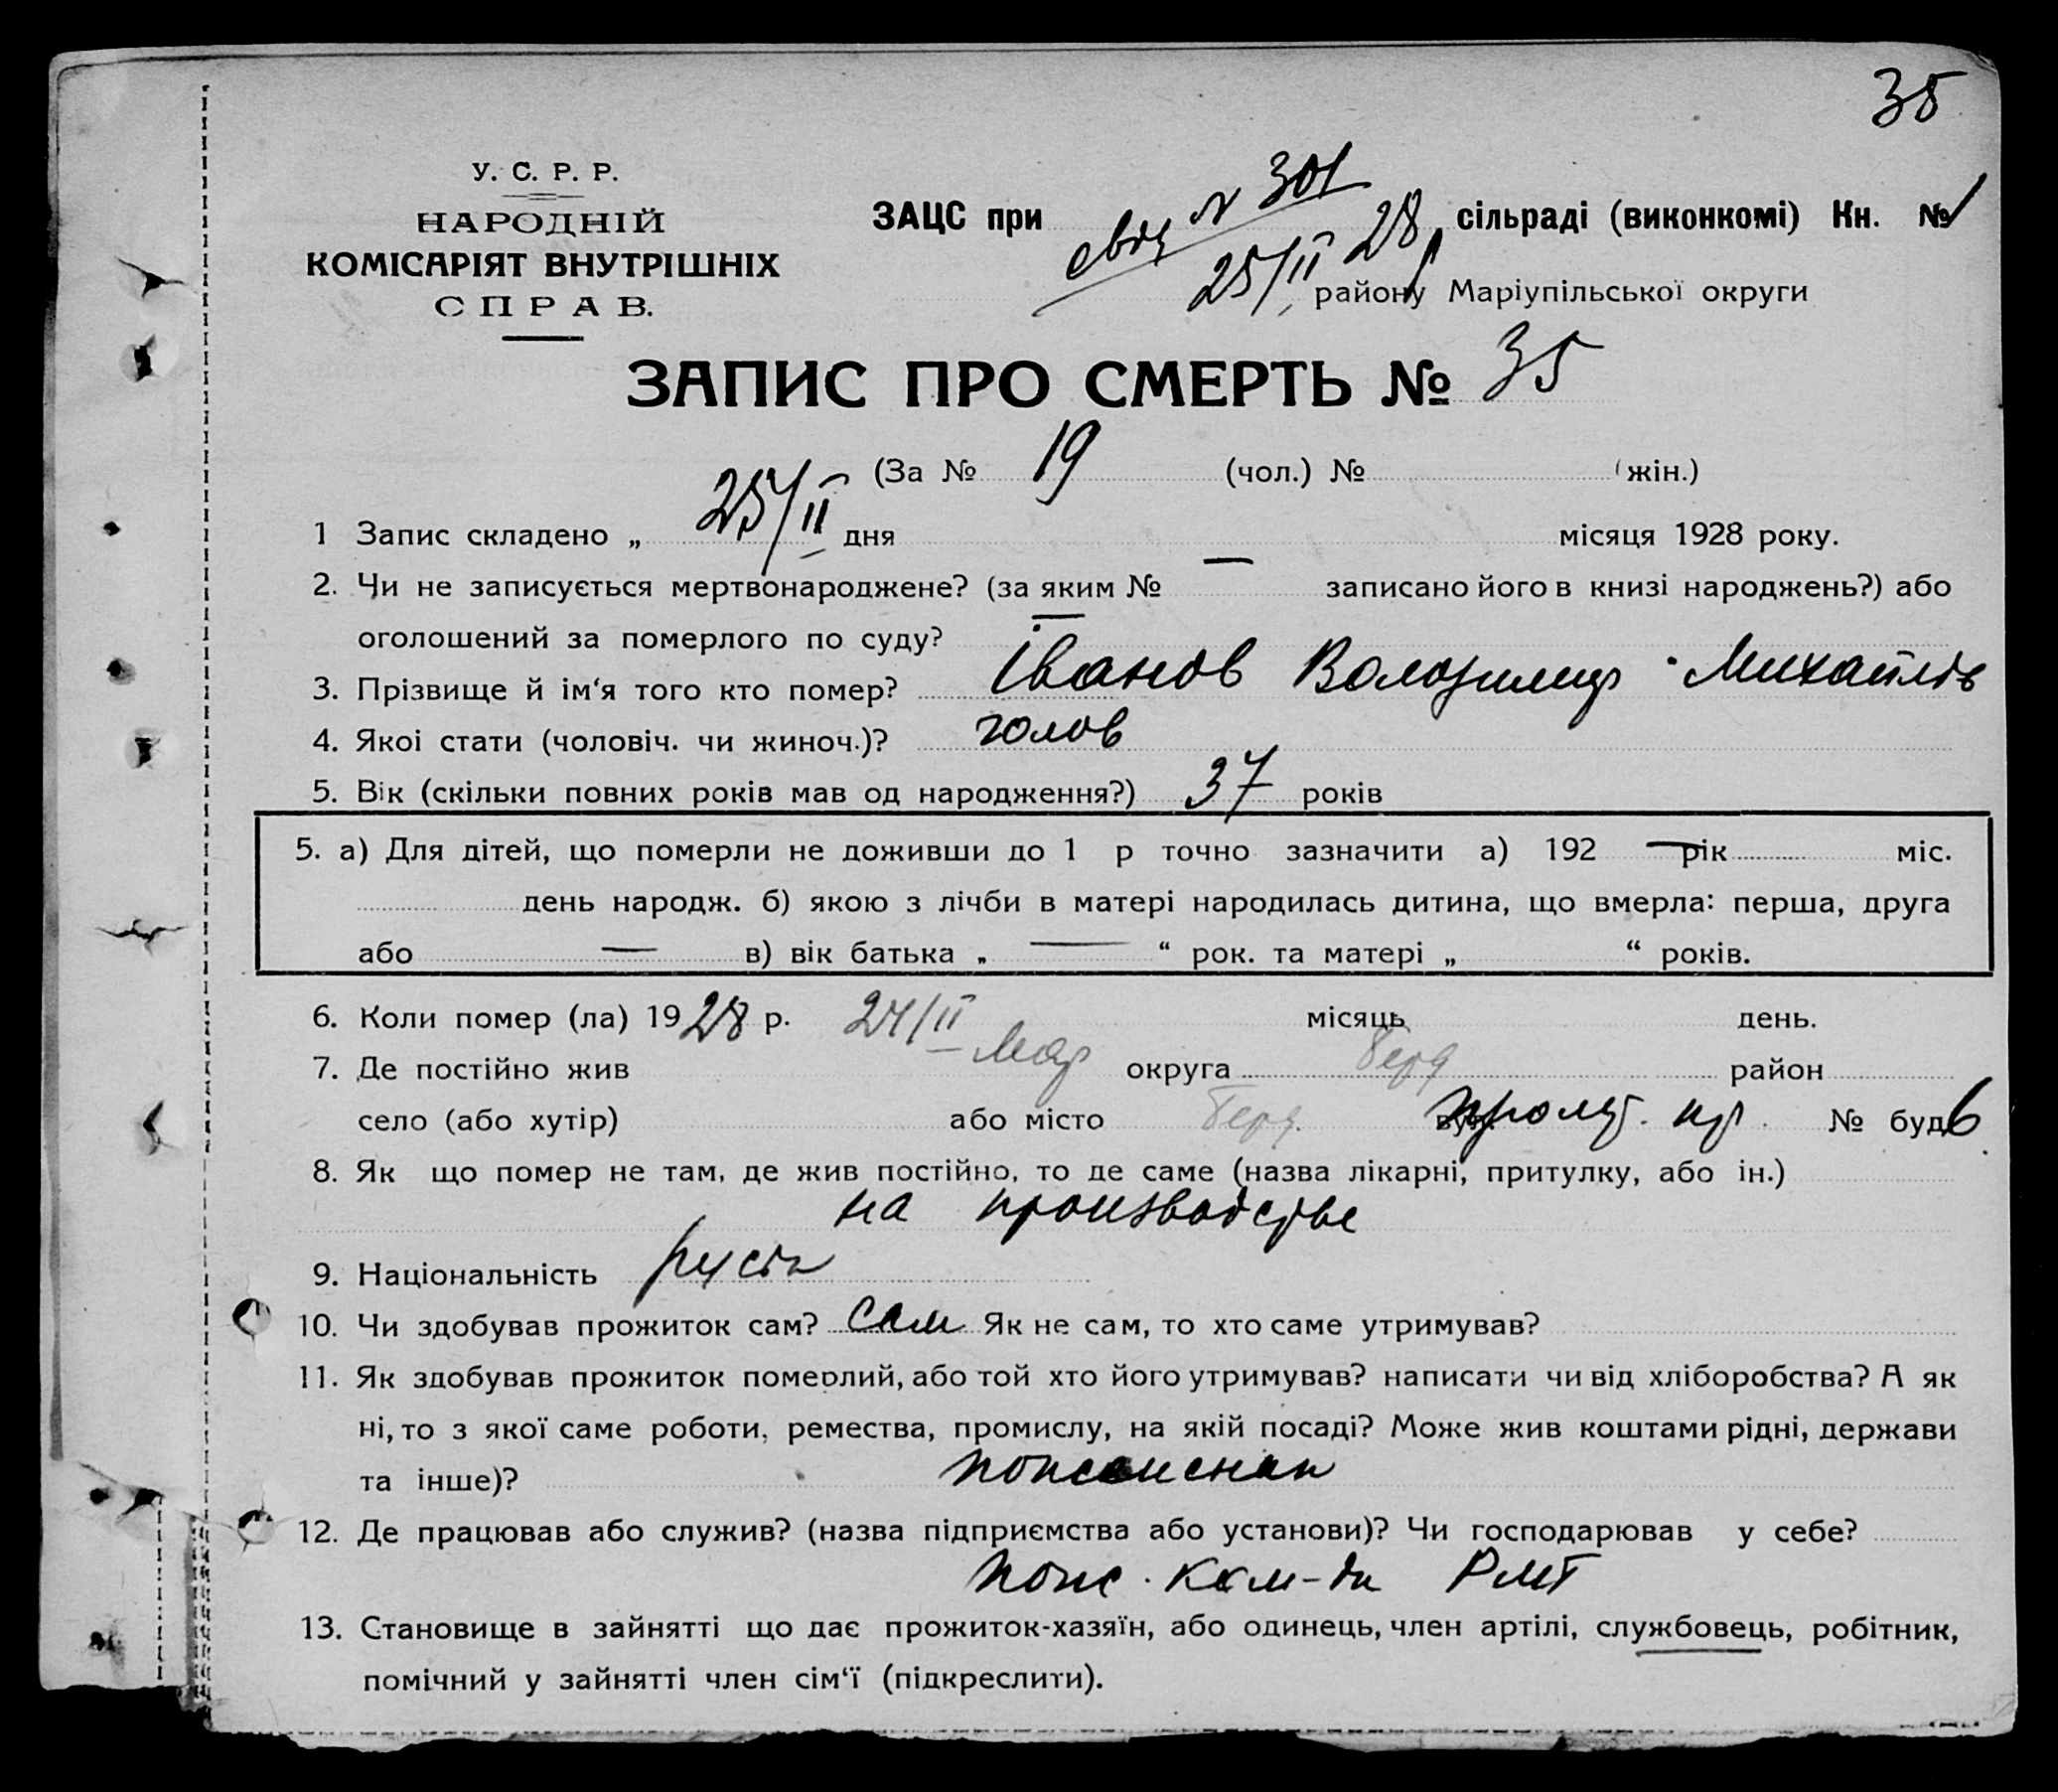 35
У. С. Р. Р.
НАРОДНІЙ
КОМІСАРІЯТ ВНУТРІШНІХ
СПРАВ.
ЗАЦС при свід N 301 сільраді (виконкомі) Кн. № 1
25/II 28 р району Маріупільської округи
ЗАПИС ПРО СМЕРТЬ № 35
(За № 19 (чол.) № (жін.)
1 Запис складено „ 25/II дня — місяця 1928 року.
2. Чи не записується мертвонароджене? (за яким № — записано його в книзі народжень?) або
оголошений за померлого по суду? —
3. Прізвище й ім‘я того кто помер? Іванов Володимир Михайлов
4. Якоі стати (чоловіч. чи жиноч.)? чолов
5. Вік (скільки повних років мав од народження?) 37 років
5. а) Для дітей, що померли не доживши до 1 р точно зазначити а) 192 — рік міс.
день народж. б) якою з лічби в матері народилась дитина, що вмерла: перша, друга
або — в) вік батька „ — “ рок. та матері „ “ років.
6. Коли помер (ла) 1928 р. 24/II місяць день.
7. Де постійно жив Мар округа Берд район
село (або хутір) або місто Берд. вул № буд 6
8. Як що помер не там, де жив постійно, то де саме (назва лікарні, притулку, або ін.)
на производстве
9. Національність
10. Чи здобував прожиток сам? Сам Як не сам, то хто саме утримував?
11. Як здобував прожиток померлий, або той хто його утримував? написати чи від хліборобства? А як
ні, то з якої саме роботи, ремества, промислу, на якій посаді? Може жив коштами рідні, держави
та інше)?
12. Де працював або служив? (назва підприємства або установи)? Чи господарював у себе?
13. Становище в зайнятті що дає прожиток-хазяїн, або одинець, член артілі, службовець, робітник,
помічний у зайнятті член сім‘ї (підкреслити).